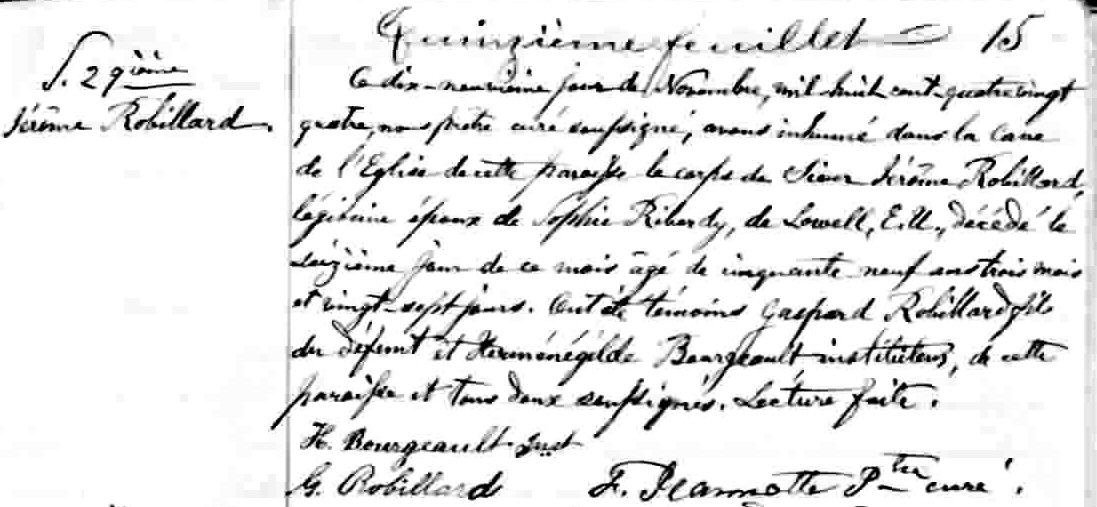 Quinzième feuillet = 15
S. 29ième
Jérôme Robillard.
Ce dix-neuvième jour de Novembre, mil huit cent quatre vingt
quatre, nous prêtre curé soussigné, avons inhumé dans la cave
de l'Eglise de cette paroisse le corps de Sieur Jérôme Robillard,
légitime époux de Sophie Ribardy, de Lowell, E.U., décédé le
seizième jour de ce mois âgé de cinquante neuf ans trois mois
et vingt-sept jours. Ont été témoins Gaspard Robillard fils
du défunt et Herménégilde Bourgeault instituteur, de cette
paroisse et tous deux soussignés. Lecture faite.
H. Bourgeault Inst
G. Robillard F. Jeannotte Ptre curé.